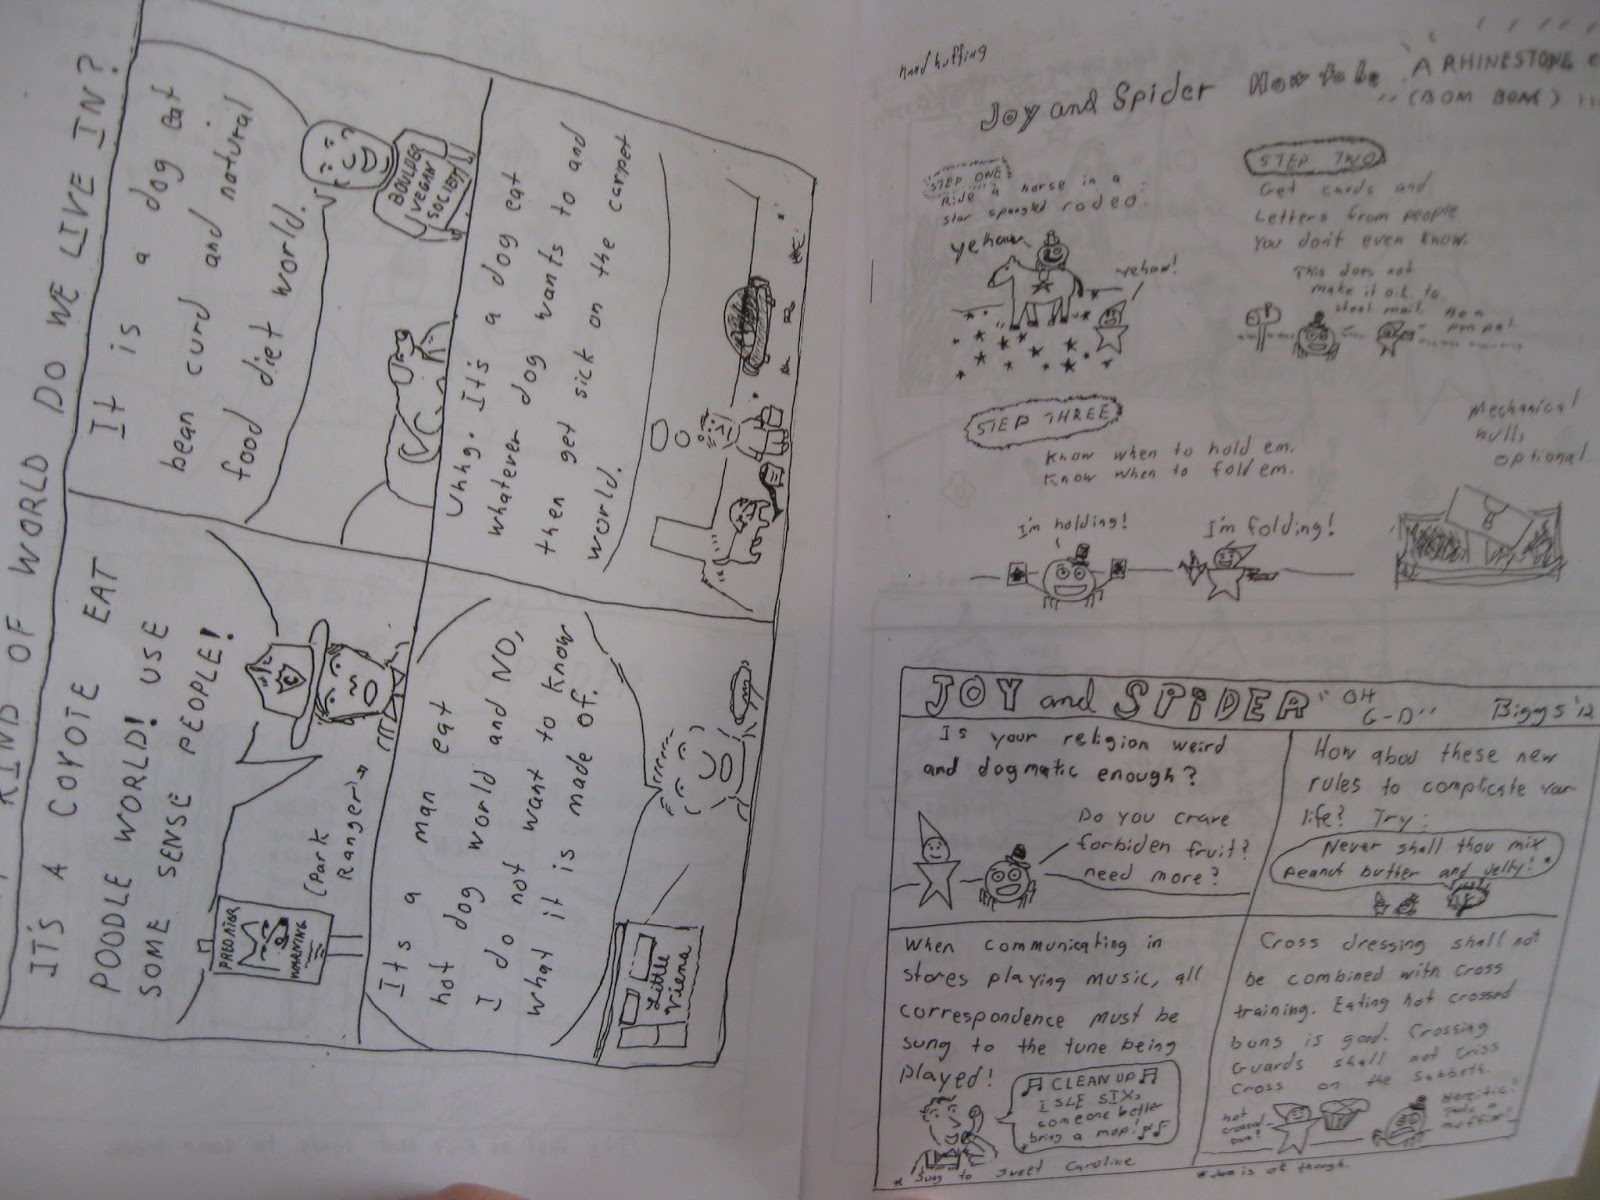 KIND OF WORLD DO WE LIVE IN?
IT'S A COYOTE EAT
POODLE WORLD! USE
SOME SENSE PEOPLE!
PREDATOR
WARNING
(Park
Ranger)
It is a dog eat
bean curd and natural
food diet world.
BOULDER
VEGAN
SOCIETY
It's a man eat
hot dog world and NO,
I do not want to know
what it is made of.
Little
Viena
Uhhg. It's a dog eat
whatever dog wants to and
then get sick on the carpet
world.
hand huffing
Joy and Spider How to be
A RHINESTONE
(BOM BOM)
STEP ONE
Ride a horse in a
star spangled rodeo.
yehaw
yehaw!
STEP TWO
Get cards and
Letters from people
You don't even know.
This does not
make it o.k. to
steal mail.
Be a
pen pal.
STEP THREE
Know when to hold em.
Know when to fold em.
I'm holding!
I'm folding!
Mechanical
bull,
optional.
JOY and SPIDER "OH
G-D"
Biggs '12
Is your religion weird
and dogmatic enough?
Do you crave
forbiden fruit?
need more?
How about these new
rules to complicate your
life? Try:
Never shall thou mix
peanut butter and Jelly!*
When communicating in
stores playing music, all
correspondence must be
sung to the tune being
played!
CLEAN UP
ISLE SIX,
someone better
bring a mop!
* Sung to Sweet Caroline
Cross dressing shall not
be combined with cross
training. Eating hot crossed
buns is good. Crossing
Guards shall not Criss
Cross on the Sabbath.
hot
crossed
bun?
Heretic!
that's a
muffin!
is ok though.